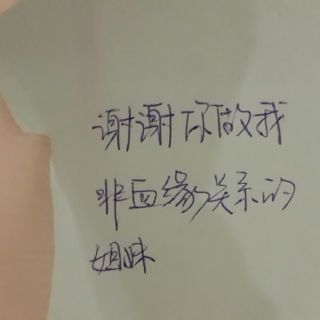 谢谢你做我
非血缘关系的
姐妹